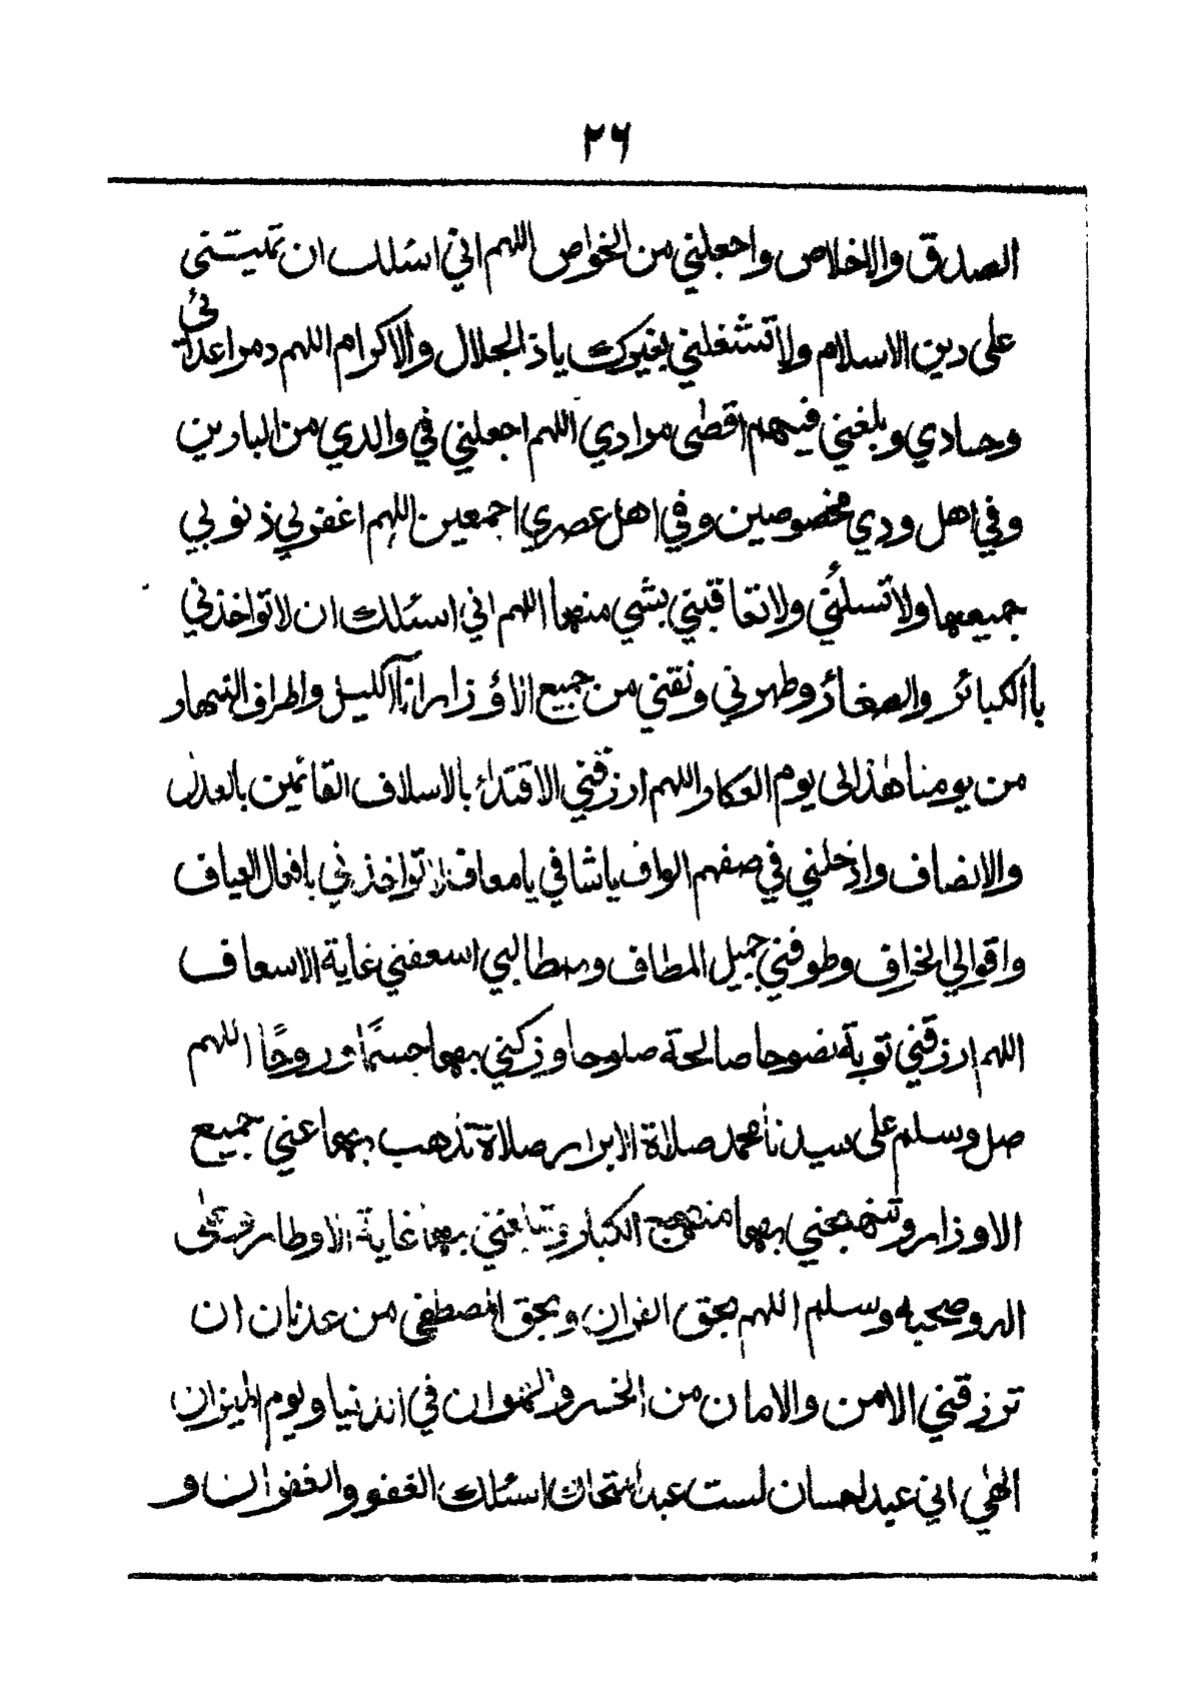 ٢٦
الصدق والاخلاص واجعلني من الخواص اللهم اني اسئلك ان تميتني
على دين الاسلام ولا تشغلني بغيرك ياذالجلال والاكرام اللهم دمر اعدائي
وحسادي وبلغني فيهم اقصى مرادي اللهم اجعلني في والدي من البارين
وفي اهل ودي مخصوصين وفي اهل عصري اجمعين اللهم اغفرلي ذنوبي
جميعها ولا تسلني ولا تعاقبني بشي منها اللهم اني اسئلك ان لا تواخذني
باالكبائر والصغائر وطهرني ونقني من جميع الاؤزار اناآ الليل واطراف النهار
من يومنا هذا الى يوم العكار اللهم ارزقني الاقتداء بالاسلاف القائمين بالعدل
والانصاف واذخلني في صفهم الواف ياشافي يامعاف لا تواخذني بافعال العياف
واقوالي الخراف وطوفني جميل المطاف ومطالبي اسعفني غاية الاسعاف
اللهم ارزقني توبة نصوحا صالحة صلوحا وزكني بها جسمًا وروحًا اللهم
صل وسلم على سيدنا محمد صلاة الابرار صلاة تذهب بها عني جميع
الاوزار وتنهجني بها منهج الكبار وتبلغني بها غاية الاوطار وعلى
اله وصحبه وسلم اللهم بحق القران وبحق المصطفى من عدنان ان
ترزقني الامن والامان من الخسر والهوان في الدنيا ويوم الميزان
الهي اني عبد احسان لست عبد امتحان اسئلك العفو والغفران و